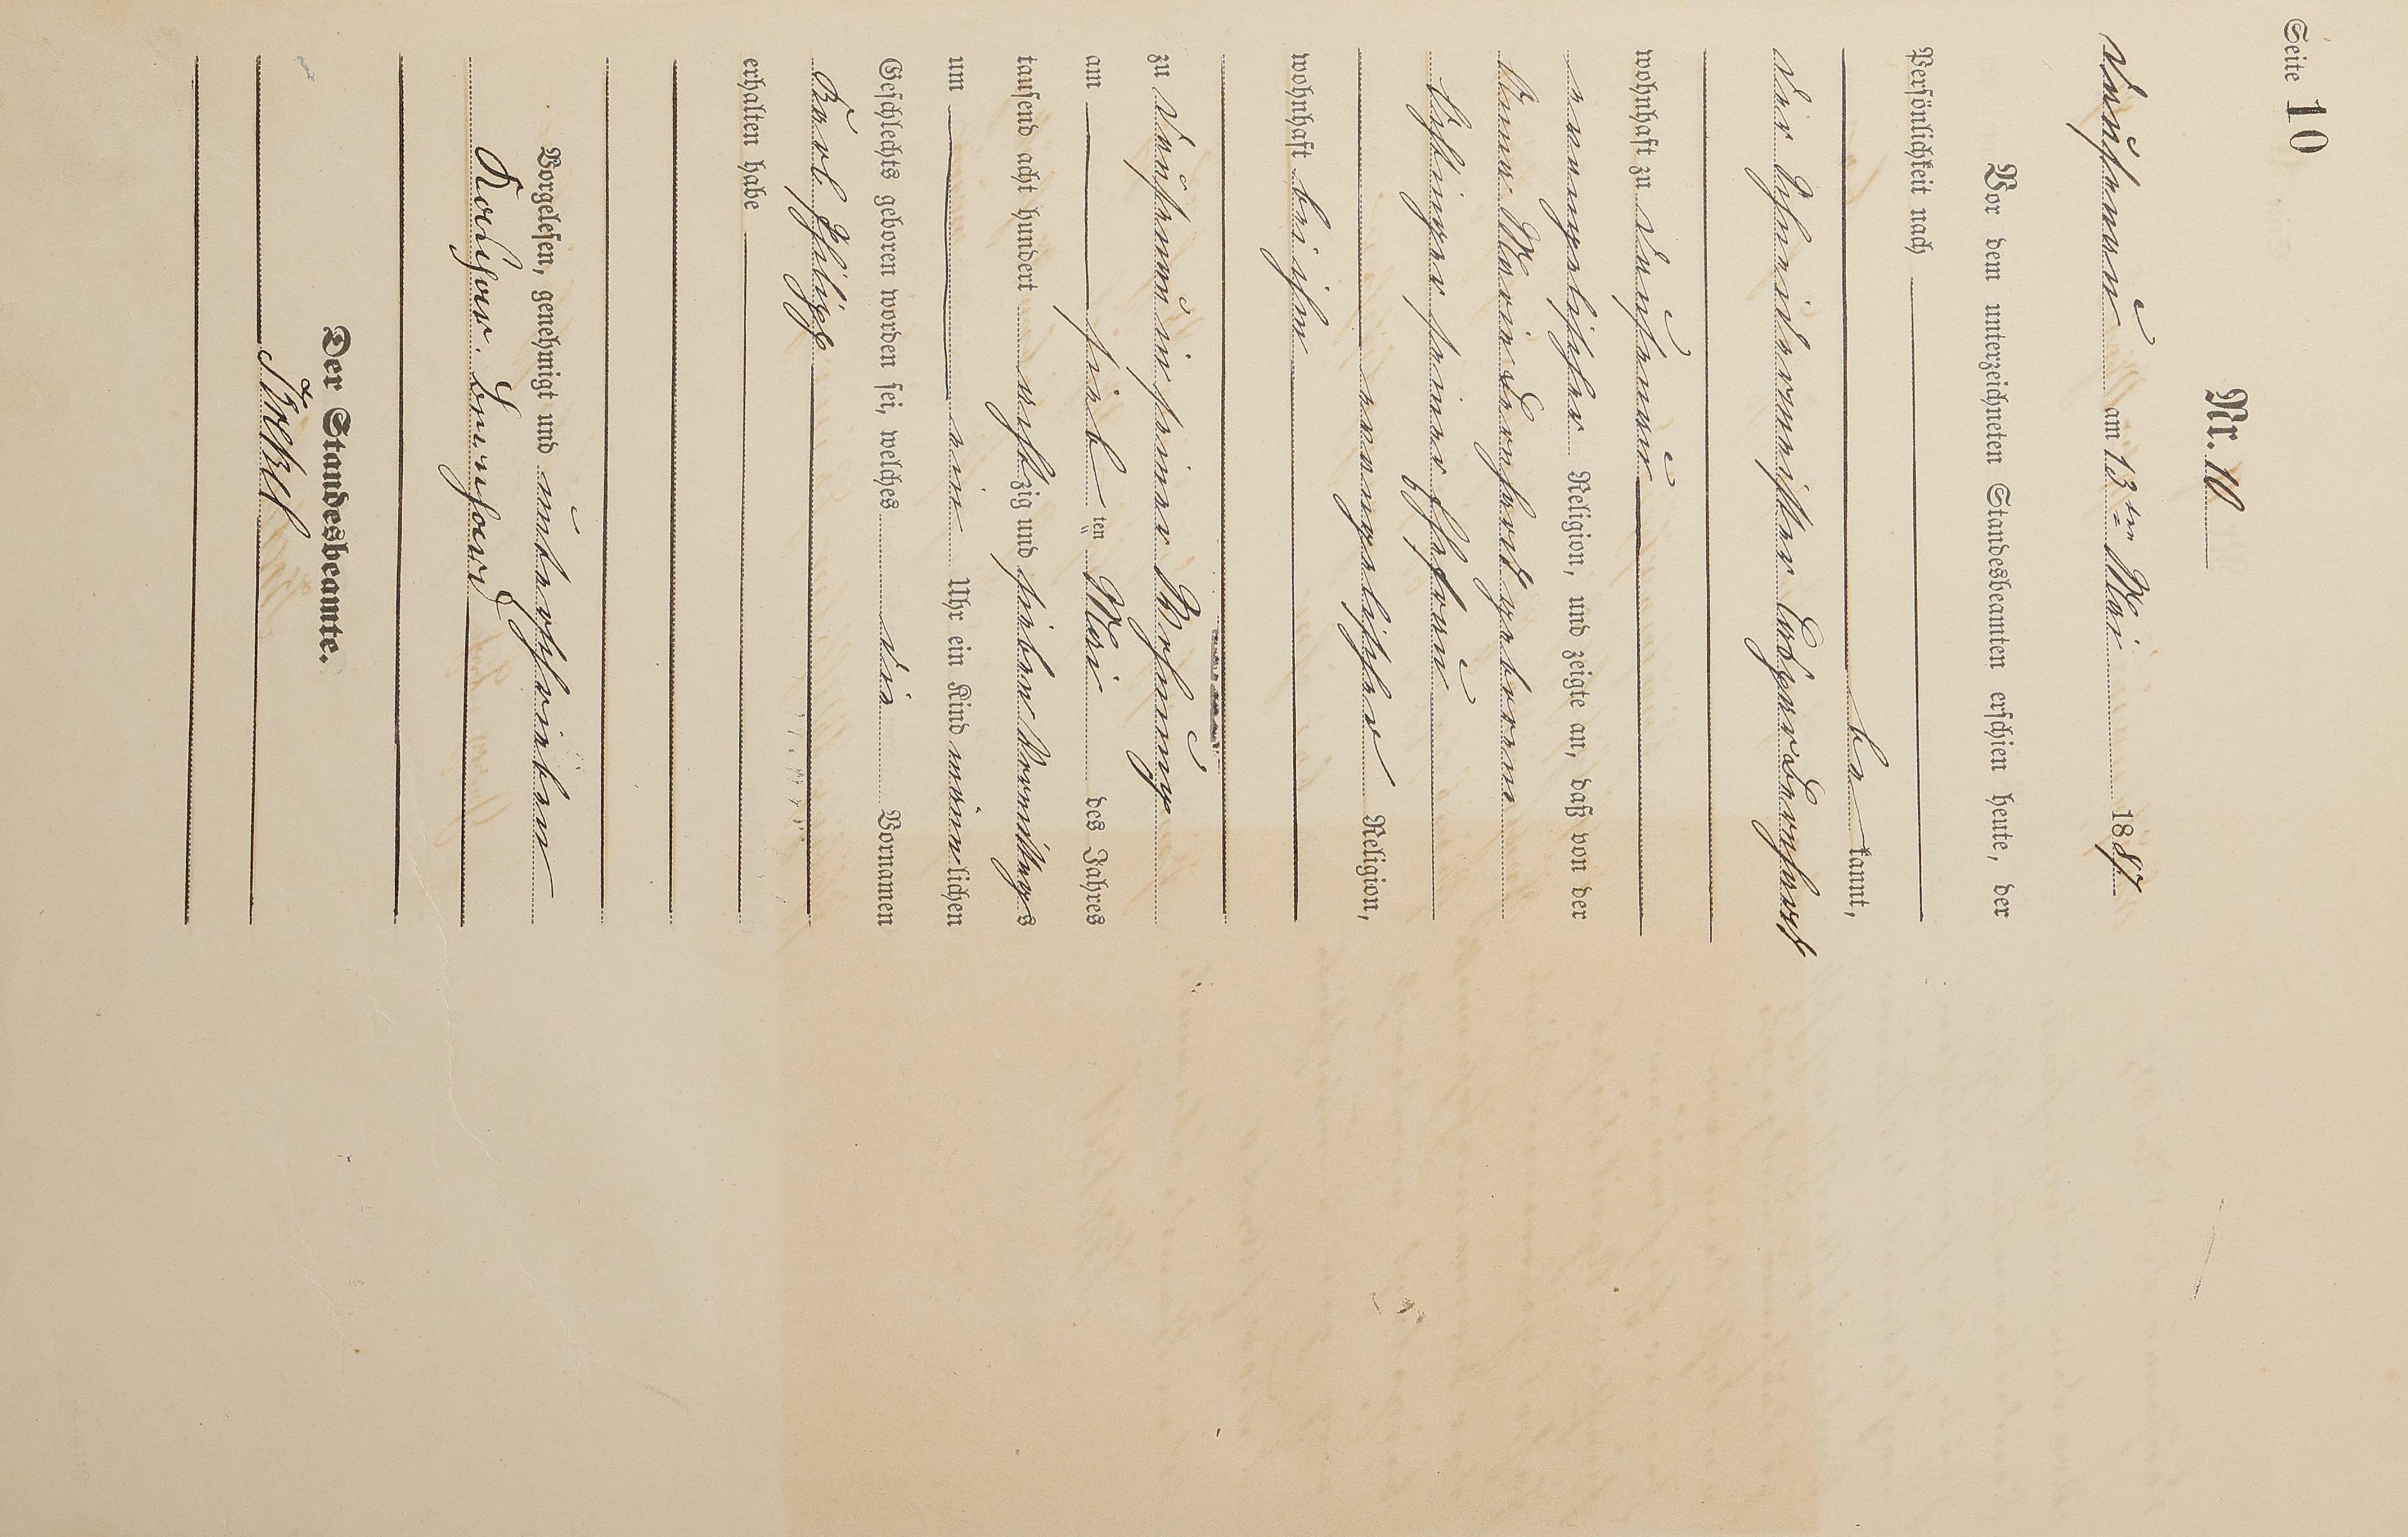 Seite 10
Nr. 10
Dausenau am 13ten Mai 1887
Vor dem unterzeichneten Standesbeamten erschien heute, der
Persönlichkeit nach
be kannt,
der Schneidermeister Caspar Bernhard
wohnhaft zu Dausenau
evangelischer Religion, und zeigte an, daß von der
Anna Maria Bernhard geborene
seiner Ehefrau
evangelischer Religion,
wohnhaft bei ihm
zu Dausenau in seiner Wohnung
am sieb ten Mai des Jahres
tausend acht hundert achtzig und sieben Vormittags
um ein Uhr ein Kind männlichen
Geschlechts geboren worden sei, welches die Vornamen
Karl Philipp
erhalten habe
Vorgelesen, genehmigt und unterschrieben
Der Standesbeamte.